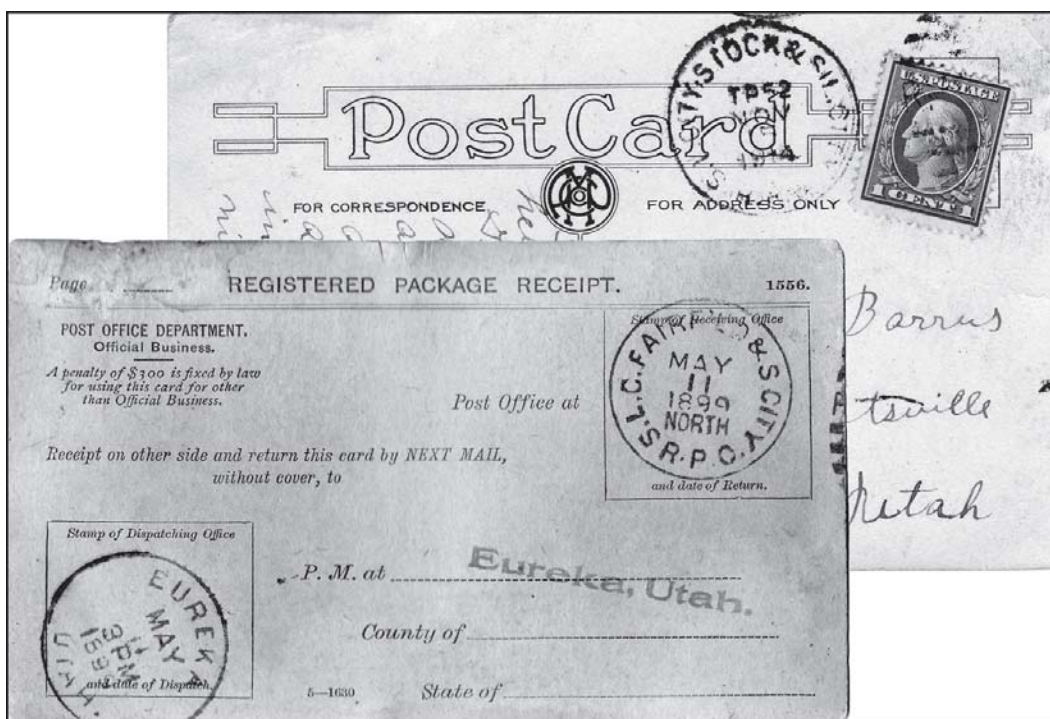 Post Card
TY, STOCK & SIL. CI
TR 52
NOV
1914
U.S. POSTAGE
1 CENT 1
FOR CORRESPONDENCE
FOR ADDRESS ONLY
Barrus
tsville
Utah
Page
REGISTERED PACKAGE RECEIPT.
1556.
POST OFFICE DEPARTMENT.
Official Business.
A penalty of $300 is fixed by law
for using this card for other
than Official Business.
Stamp of Receiving Office
S.L.C. FAIRFIELD & S CITY
MAY
11
1899
NORTH
R.P.O.
and date of Return.
Post Office at
Receipt on other side and return this card by NEXT MAIL,
without cover, to
Stamp of Dispatching Office
EUREKA
MAY
11
3 PM
1899
UTAH.
and date of Dispatch.
P. M. at Eureka, Utah.
County of
5—1630
State of